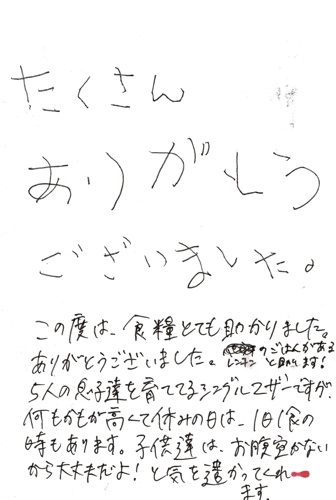 たくさん
ありがとう
ございました。
この度は、食糧とても助かりました。
ありがとうございました。 のごはんがある
と助かります!
5人の息子達を育ててるシングルマザーですが、
何もかもが高くて休みの日は、1日1食の
時もあります。子供達は、お腹空かない
から大丈夫だよ!と気を遣ってくれ
ます。